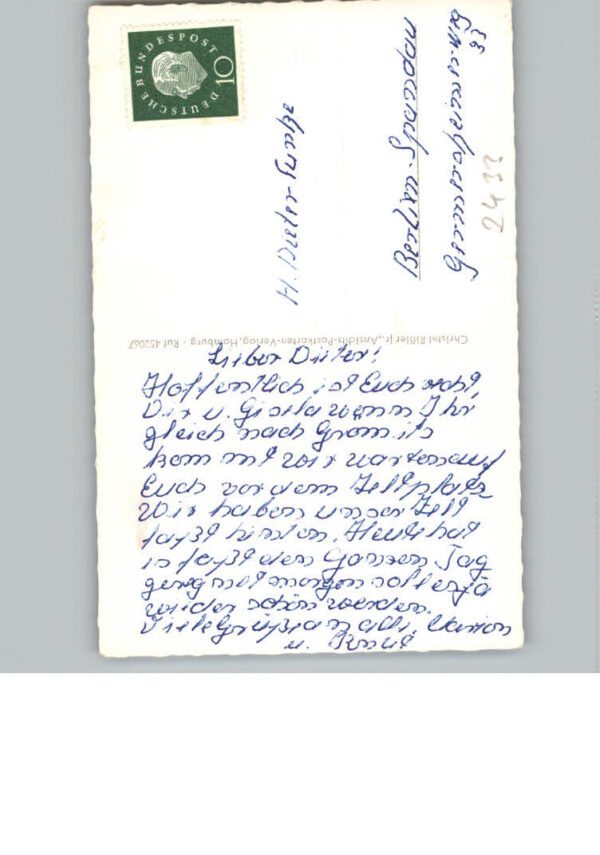 DEUTSCHE BUNDESPOST
10
H. Dieter
Berlin-Spandau
33
2433
Christel Rißler jr., Ansichts-Postkarten-Verlag, Hamburg - Ruf 452067
Lieber Dieter!
Hoffentlich ist Euch recht,
Dir u. Gisela wenn Ihr
gleich nach Gromitz
kommt wir warten auf
Euch vor dem Zeltplatz
Wir haben unser Zelt
faßt hinten. Heute hat
is faßt den Ganzen Tag
geregnet morgen soll es ja
wieder schön werden.
Viele Grüße an alle,
u.